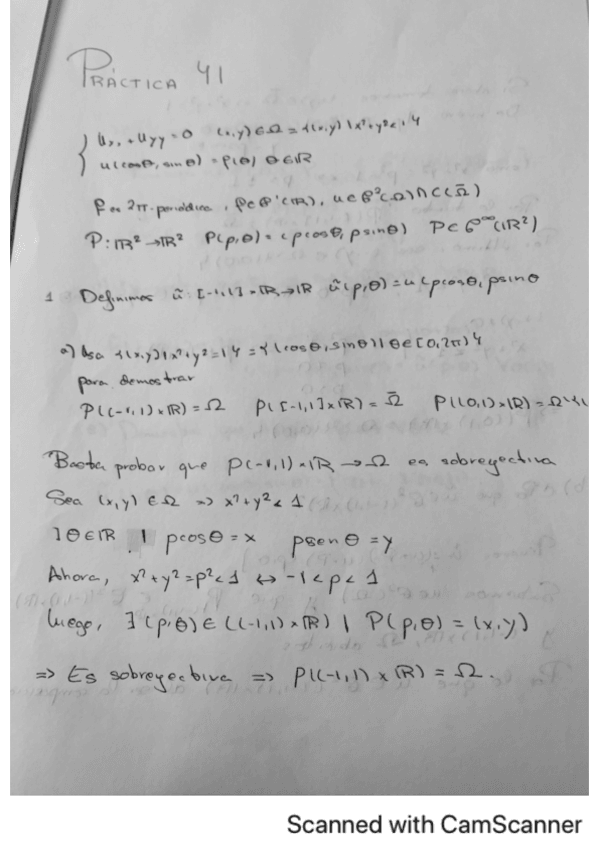 PRÁCTICA 41
{ Uxx + Uyy = 0 (x,y) ∈ Ω = {(x,y) | x²+y² < 1}
u(cosθ, sinθ) = f(θ) θ∈ℝ
f es 2π-periódica, f∈C¹(ℝ), u∈C²(Ω)∩C(Ω̄)
P: ℝ²→ℝ² P(ρ,θ) = (ρcosθ, ρsinθ) P∈C^∞(ℝ²)
1 Definimos ũ: [-1,1]×ℝ→ℝ ũ(ρ,θ) = u(ρcosθ, ρsinθ
a) Usa {(x,y) | x²+y²=1} = {(cosθ, sinθ) | θ∈[0,2π)}
para demostrar
P((-1,1)×ℝ) = Ω P([-1,1]×ℝ) = Ω̄ P((0,1)×ℝ) = Ω\{(
Basta probar que P(-1,1)×ℝ → Ω es sobreyectiva
Sea (x,y) ∈ Ω => x²+y² < 1
∃θ∈ℝ | ρcosθ = x ρsenθ = y
Ahora, x²+y² = ρ² < 1 ↔ -1 < ρ < 1
Luego, ∃(ρ,θ) ∈ ((-1,1)×ℝ) | P(ρ,θ) = (x,y)
=> Es sobreyectiva => P((-1,1)×ℝ) = Ω.
Scanned with CamScanner